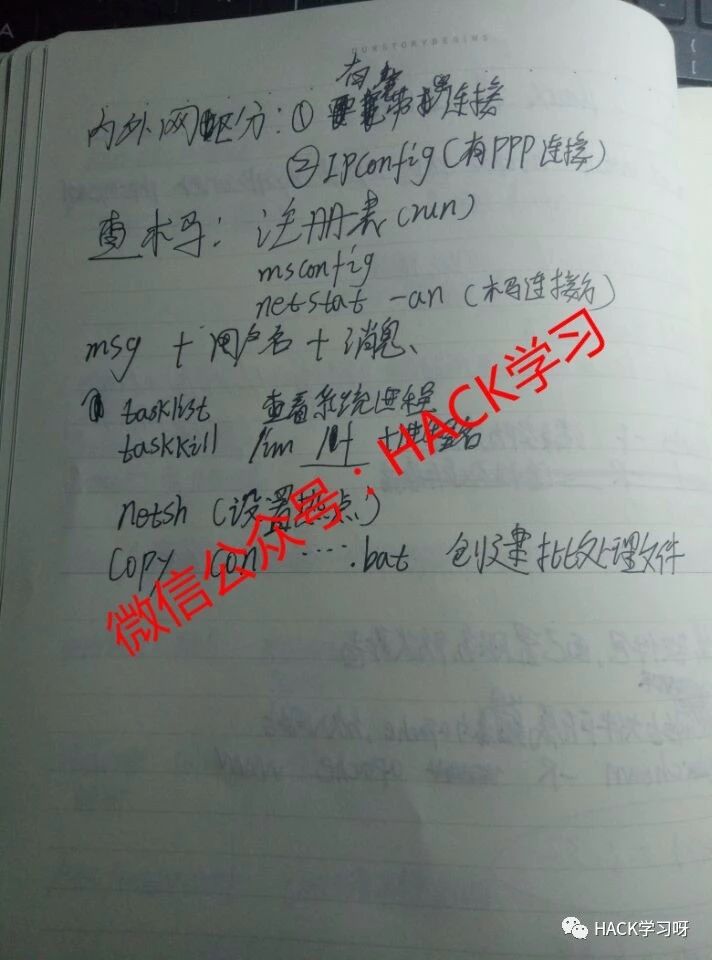 OURSTORYBEGINS
内外网区分：① 有宽带连接
② IPconfig（有PPP连接）
查木马：注册表（run）
msconfig
netstat -an（木马连接方）
msg + 用户名 + 消息、
① tasklist 查看系统进程
taskkill /im /f +进程名
netsh（设置热点）
copy con ·····.bat 创建批处理文件
微信公众号：HACK学习
HACK学习呀